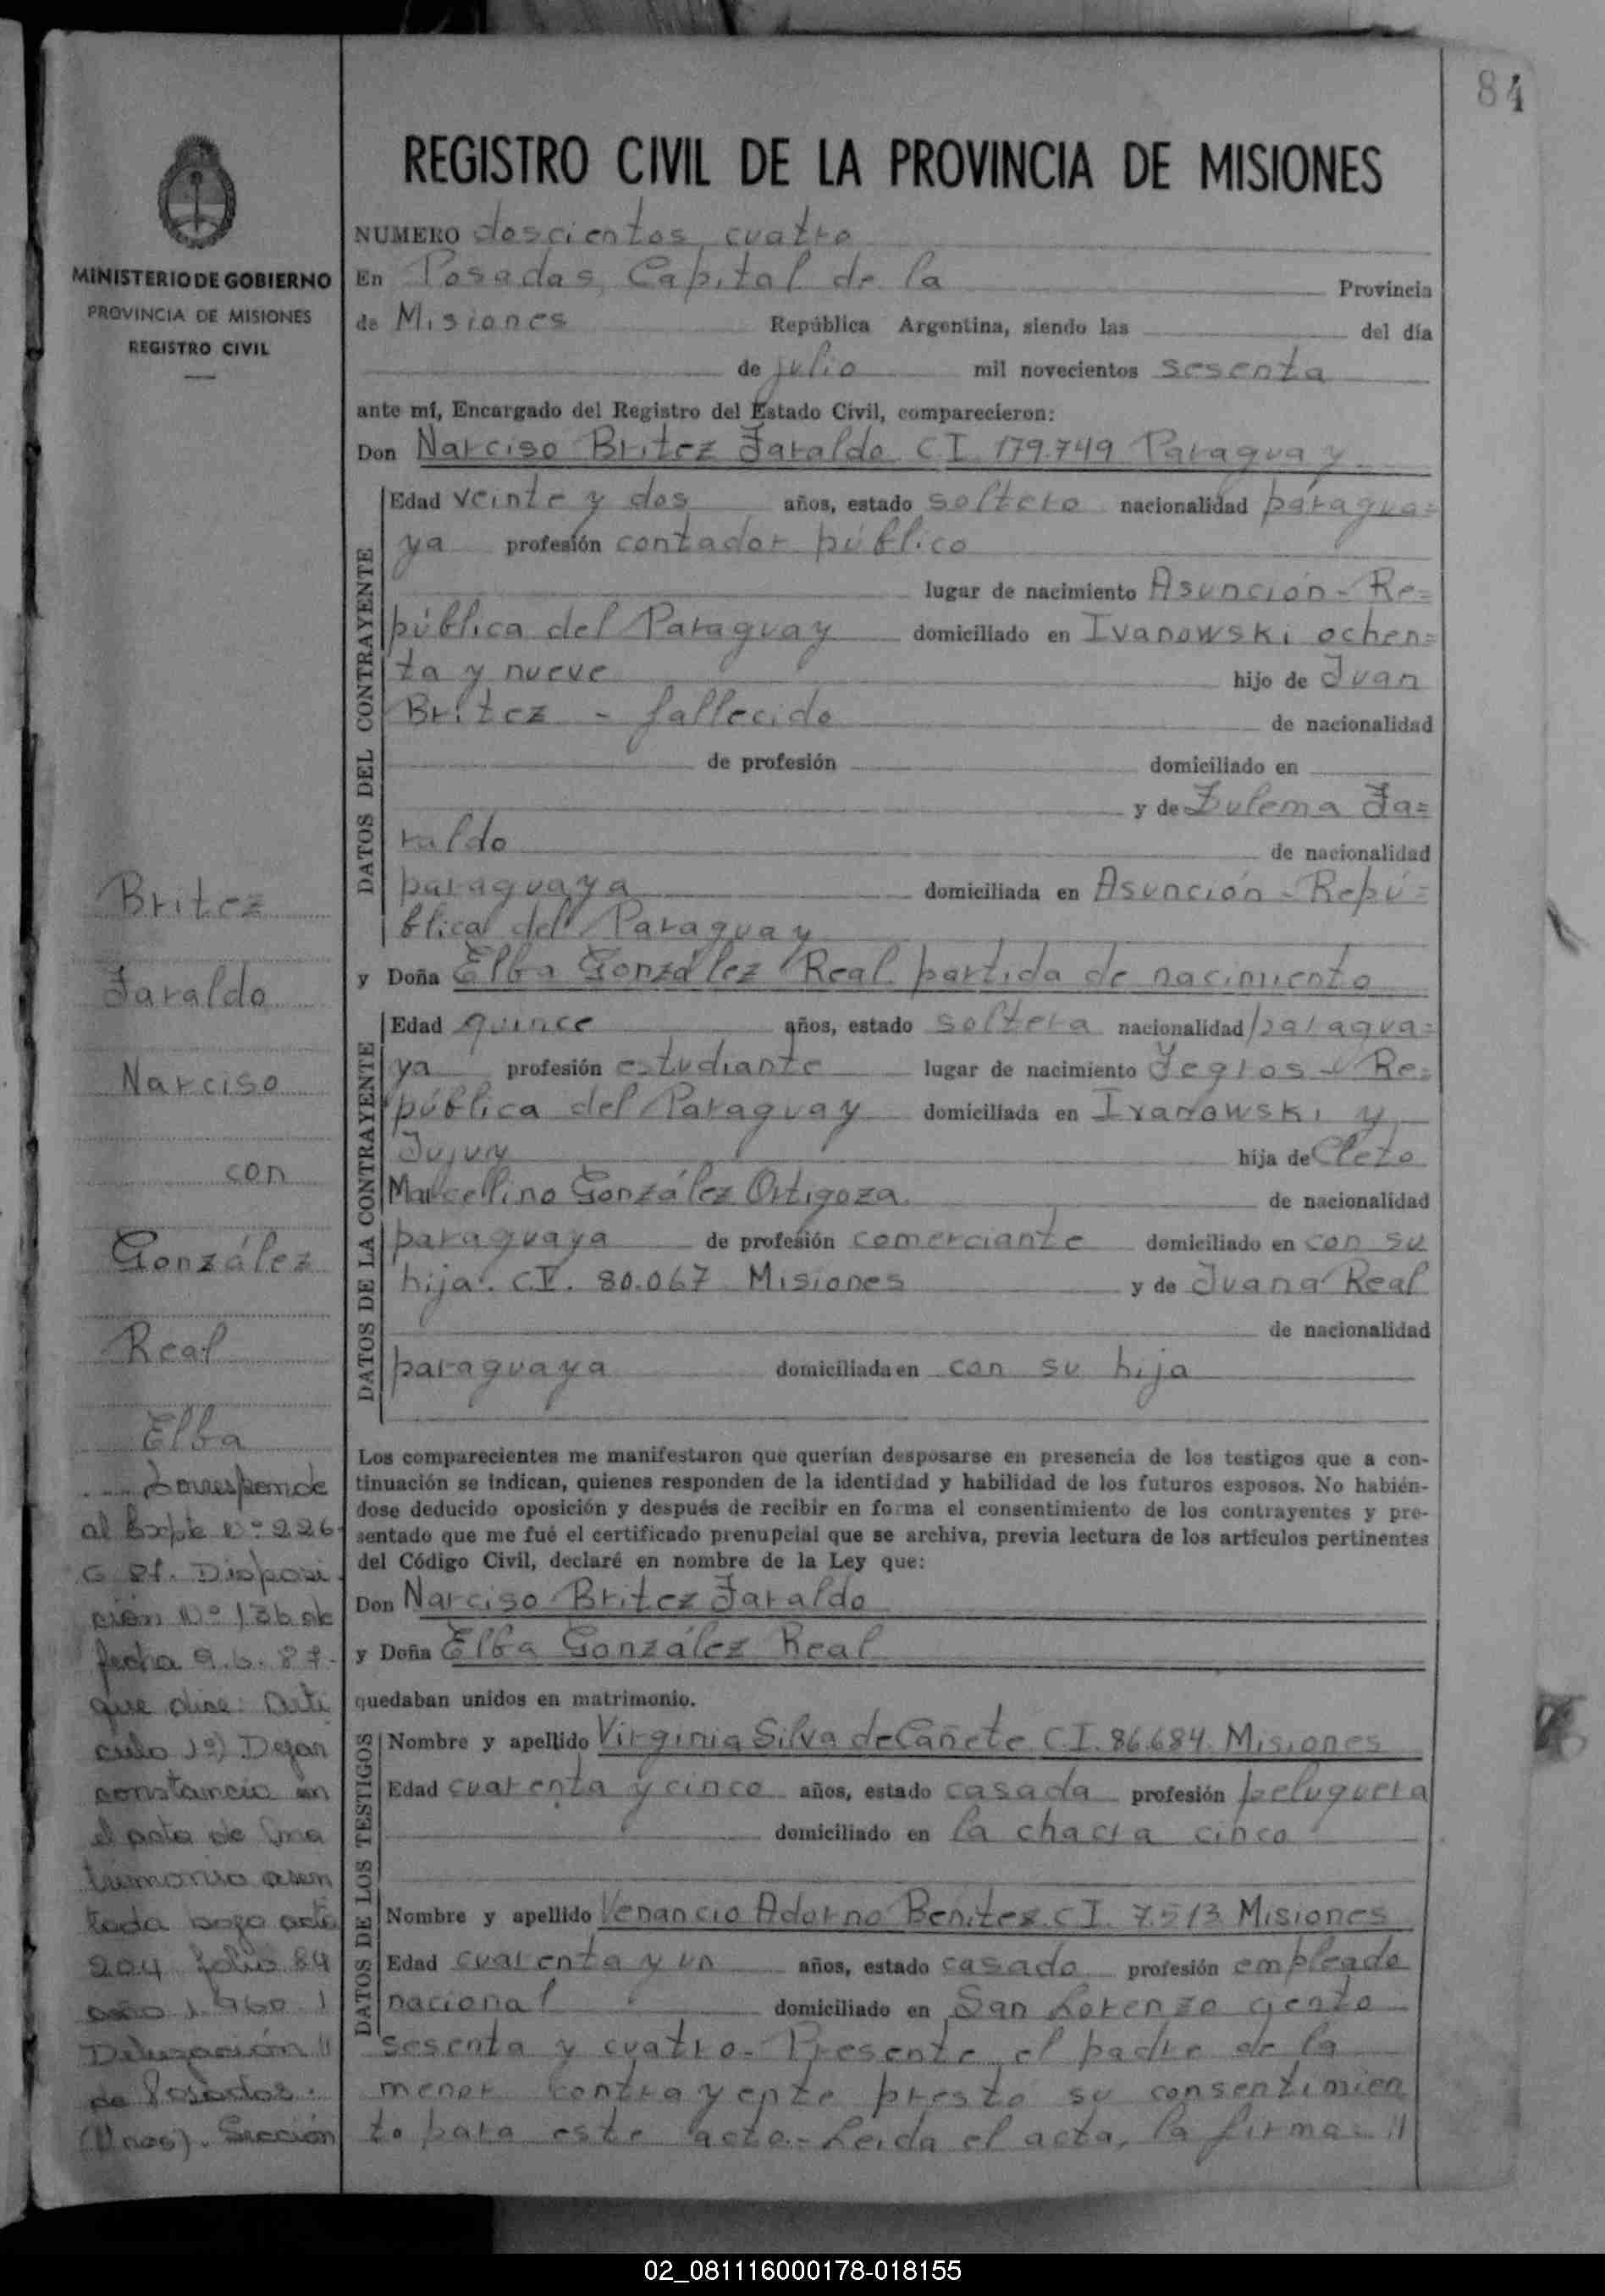 84
REGISTRO CIVIL DE LA PROVINCIA DE MISIONES
MINISTERIO DE GOBIERNO
PROVINCIA DE MISIONES
REGISTRO CIVIL
NUMERO doscientos cuatro
En Posadas, Capital de la Provincia
de Misiones República Argentina, siendo las del día
de julio mil novecientos sesenta
ante mí, Encargado del Registro del Estado Civil, comparecieron:
Don Narciso Britez Faraldo C.I. 179.749 Paraguay
DATOS DEL CONTRAYENTE
Edad veinte y dos años, estado soltero nacionalidad paragua=
ya profesión contador público
lugar de nacimiento Asunción - Re=
pública del Paraguay domiciliado en Ivanowski ochen=
ta y nueve hijo de Juan
Britez - fallecido de nacionalidad
de profesión domiciliado en
y de Zulema Fa=
raldo de nacionalidad
paraguaya domiciliada en Asunción - Repú=
blica del Paraguay
y Doña Elba González Real partida de nacimiento
DATOS DE LA CONTRAYENTE
Edad quince años, estado soltera nacionalidad paragua=
ya profesión estudiante lugar de nacimiento Yegros - Re=
pública del Paraguay domiciliada en Ivanowski y
Jujuy hija de Cleto
Marcellino González Ortigoza de nacionalidad
paraguaya de profesión comerciante domiciliado en con su
hija. C.I. 80.067 Misiones y de Juana Real
de nacionalidad
paraguaya domiciliada en con su hija
Los comparecientes me manifestaron que querían desposarse en presencia de los testigos que a con-
tinuación se indican, quienes responden de la identidad y habilidad de los futuros esposos. No habién-
dose deducido oposición y después de recibir en forma el consentimiento de los contrayentes y pre-
sentado que me fué el certificado prenupcial que se archiva, previa lectura de los artículos pertinentes
del Código Civil, declaré en nombre de la Ley que:
Don Narciso Britez Faraldo
y Doña Elba González Real
quedaban unidos en matrimonio.
DATOS DE LOS TESTIGOS
Nombre y apellido Virginia Silva de Cañete C.I. 86.684. Misiones
Edad cuarenta y cinco años, estado casada profesión peluquera
domiciliado en la chacra cinco
Nombre y apellido Venancio Adorno Benítez C.I. 7.513 Misiones
Edad cuarenta y un años, estado casado profesión empleado
nacional domiciliado en San Lorenzo ciento
sesenta y cuatro - Presente el padre de la
menor contrayente prestó su consentimien
to para este acto.- Leída el acta, la firma= //
Britez
Faraldo
Narciso
con
González
Real
Elba
Corresponde
al Expte Nº 226
G 87. Disposi
ción Nº 136 de
fecha 9.6.87-
que dice: Artí
culo 1º) Dejar
constancia en
el acta de ma
trimonio asen
tada bajo acta
204 folio 84
año 1.960 1
Delegación 11
de Posadas.
(Mnes). Sección
02_081116000178-018155